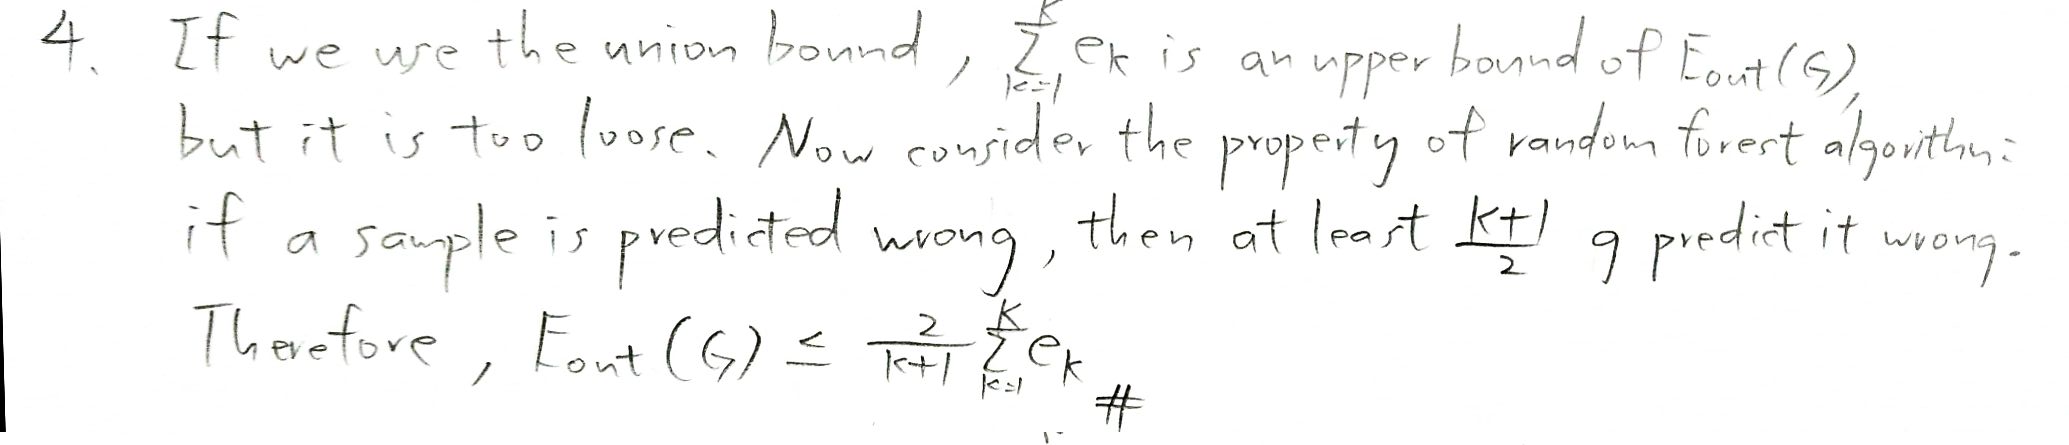 4. If we use the union bound, $\sum_{k=1}^{K} e_k$ is an upper bound of $E_{out}(G)$,
but it is too loose. Now consider the property of random forest algorithm:
if a sample is predicted wrong, then at least $\frac{K+1}{2}$ g predict it wrong.
Therefore, $E_{out}(G) \leq \frac{2}{K+1} \sum_{k=1}^{K} e_k$ #